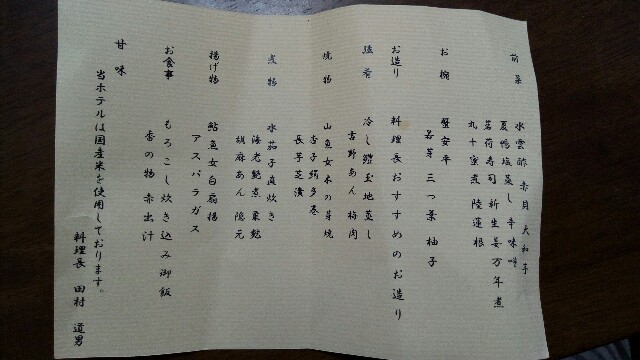 前菜
水雲酢 赤貝 大和芋
夏鴨塩蒸し 辛味噌
茗荷寿司 新生姜万年煮
丸十寅煮 陸蓮根
お椀
蟹安平
若芽 三つ葉 柚子
お造り
料理長おすすめのお造り
温肴
冷し鱧玉地蒸し
吉野あん 梅肉
焼物
山魚女木の芽焼
杏子絹多巻
長芋芝漬
煮物
水茄子直炊き
海老艶煮 粟麩
胡麻あん 隠元
揚げ物
鮎魚女白扇揚
アスパラガス
お食事
もろこし炊き込み御飯
香の物 赤出汁
甘味
当ホテルは国産米を使用しております。
料理長 田村 道男